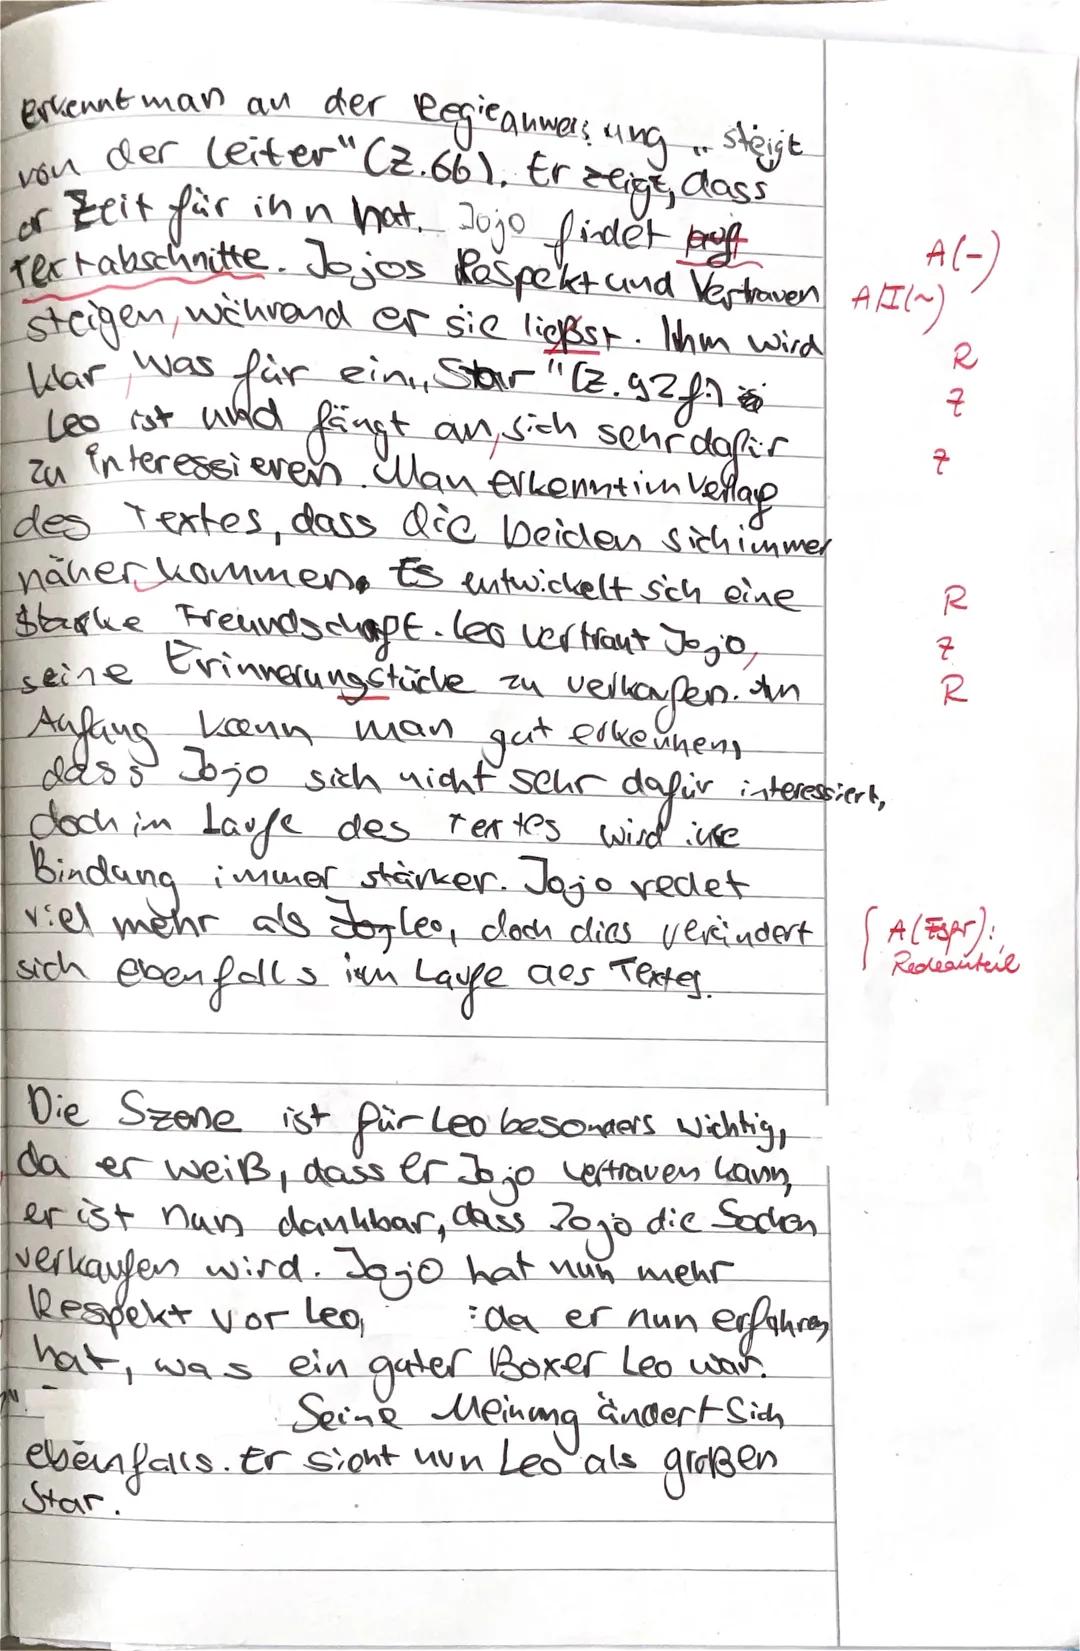 erkennt man an der Regieanweisung „steigt
von der Leiter" (Z.66). Er zeigt, dass
er Zeit für ihn hat. Jojo findet
Textabschnitte. Jojos Respekt und Vertrauen
A(-)
steigen, während er sie ließst. Ihm wird
A/I(~)
klar, was für ein „Star" (Z.92f.)
R
Leo ist und fängt an, sich sehr dafür
Z
zu interessieren. Man erkennt im Verlauf
Z
des Textes, dass die beiden sich immer
näher kommen. Es entwickelt sich eine
starke Freundschaft. Leo vertraut Jojo,
R
seine Erinnerungstücke zu verkaufen. Am
Z
Anfang kann man gut erkennen,
R
dass Jojo sich nicht sehr dafür interessiert,
doch im Laufe des Textes wird ihre
Bindung immer stärker. Jojo redet
viel mehr als Leo, doch dies verändert
A(Espr):
sich ebenfalls im Laufe des Textes.
Redeanteil
Die Szene ist für Leo besonders wichtig,
da er weiß, dass er Jojo vertrauen kann,
er ist nun dankbar, dass Jojo die Sachen
verkaufen wird. Jojo hat nun mehr
Respekt vor Leo, da er nun erfahren
hat, was ein guter Boxer Leo war.
Seine Meinung ändert sich
ebenfalls. Er sieht nun Leo als großen
Star.